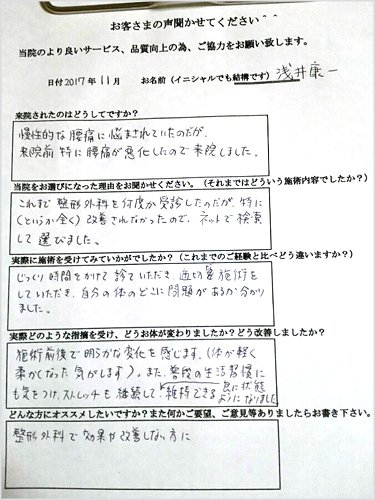 お客さまの声聞かせてください^^
当院のより良いサービス、品質向上の為、ご協力をお願い致します。
日付2017年11月 お名前（イニシャルでも結構です）浅井康一
来院されたのはどうしてですか?
慢性的な腰痛に悩まされていたのだが、
来院前特に腰痛が悪化したので来院しました。
当院をお選びになった理由をお聞かせください。（それまではどういう施術内容でしたか?）
これまで整形外科を何度か受診したのだが、特に
（というか全く）改善されなかったので、ネットで検索
して選びました。
実際に施術を受けてみていかがでしたか?（これまでのご経験と比べどう違いますか?）
じっくり時間をかけて診ていただき、適切な施術を
していただき、自分の体のどこに問題があるか分かり
ました。
実際どのような指摘を受け、どうお体が変わりましたか?どう改善しましたか?
施術前後で明らかな変化を感じます。（体が軽く
柔かくなった気がします）。また、普段の生活習慣に
も気をつけ、ストレッチも継続して、良い状態
維持できるようになりました
どんな方にオススメしたいですか?また何かご要望、ご意見等ありましたらお書き下さい。
整形外科で効果や改善しない方に